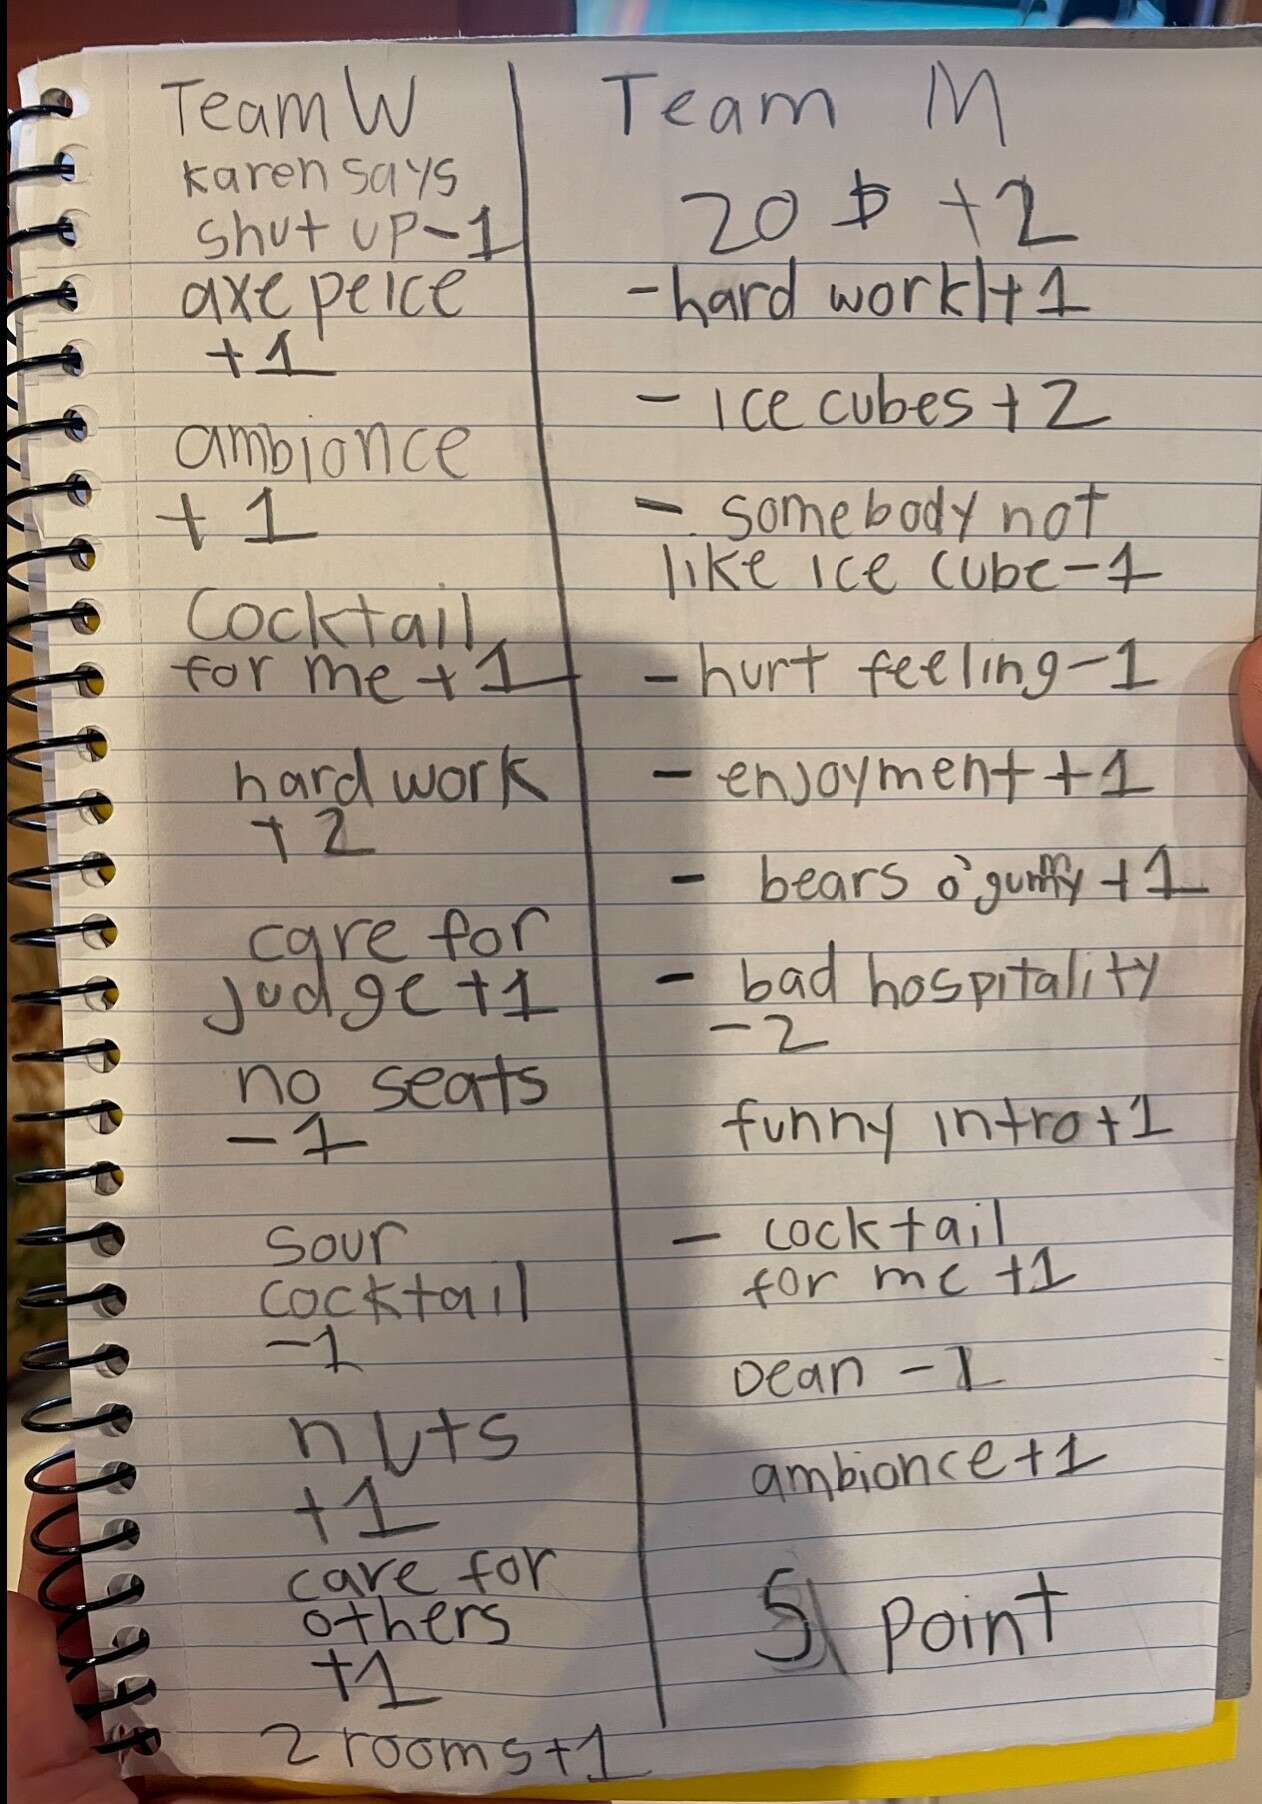 Team W
karen says
shut up -1
axe peice
+1
ambionce
+1
Cocktail
for me +1
hard work
+2
care for
judge +1
no seats
-1
sour
cocktail
-1
nuts
+1
care for
others
+1
2 rooms +1
Team M
20 $ +2
- hard work +1
- ice cubes +2
- somebody not
like ice cube -1
- hurt feeling -1
- enjoyment +1
- bears o'guffy +1
- bad hospitality
-2
funny intro +1
- cocktail
for me +1
Dean -1
ambionce +1
5 point